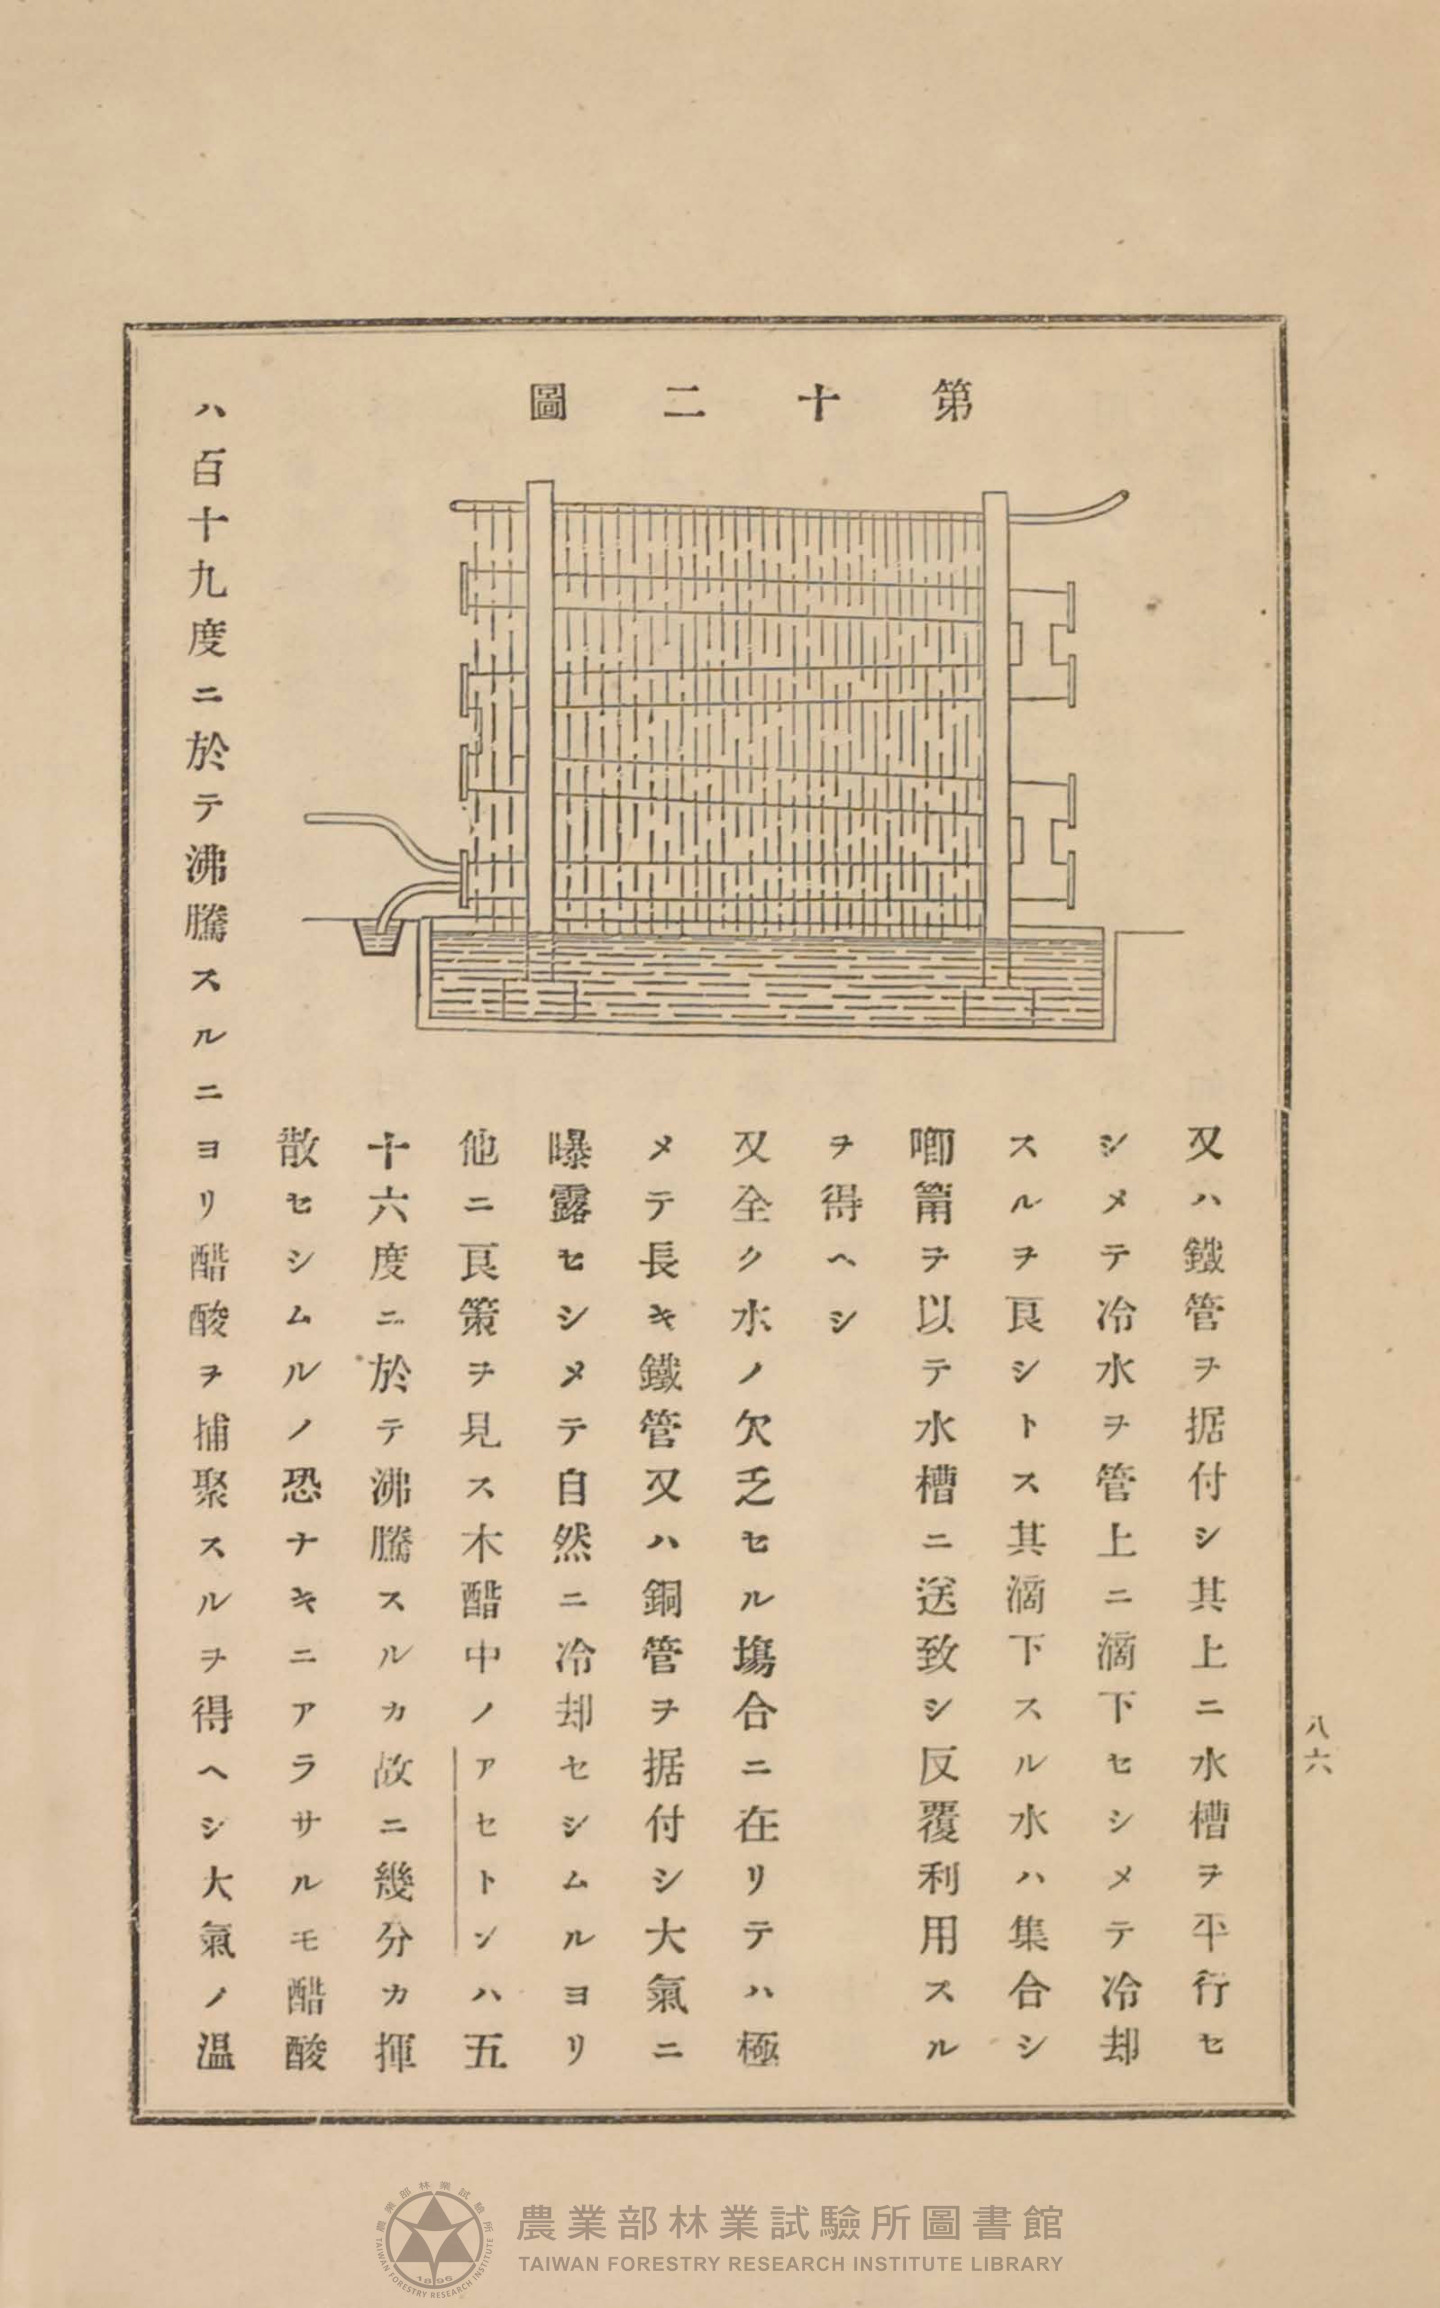 第十二圖
又ハ鐵管ヲ据付シ其上ニ水槽ヲ平行セ
シメテ冷水ヲ管上ニ滴下セシメテ冷却
スルヲ良シトス其滴下スル水ハ集合シ
喞筩ヲ以テ水槽ニ送致シ反覆利用スル
ヲ得ヘシ
又全ク水ノ欠乏セル塲合ニ在リテハ極
メテ長キ鐵管又ハ銅管ヲ据付シ大氣ニ
曝露セシメテ自然ニ冷却セシムルヨリ
他ニ良策ヲ見ス木醋中ノアセトンハ五
十六度ニ於テ沸騰スルカ故ニ幾分カ揮
散セシムルノ恐ナキニアラサルモ醋酸
ハ百十九度ニ於テ沸騰スルニヨリ醋酸ヲ捕聚スルヲ得ヘシ大氣ノ温
八六
農業部林業試驗所圖書館
TAIWAN FORESTRY RESEARCH INSTITUTE LIBRARY
農業部林業試驗所
TAIWAN FORESTRY RESEARCH INSTITUTE
1896